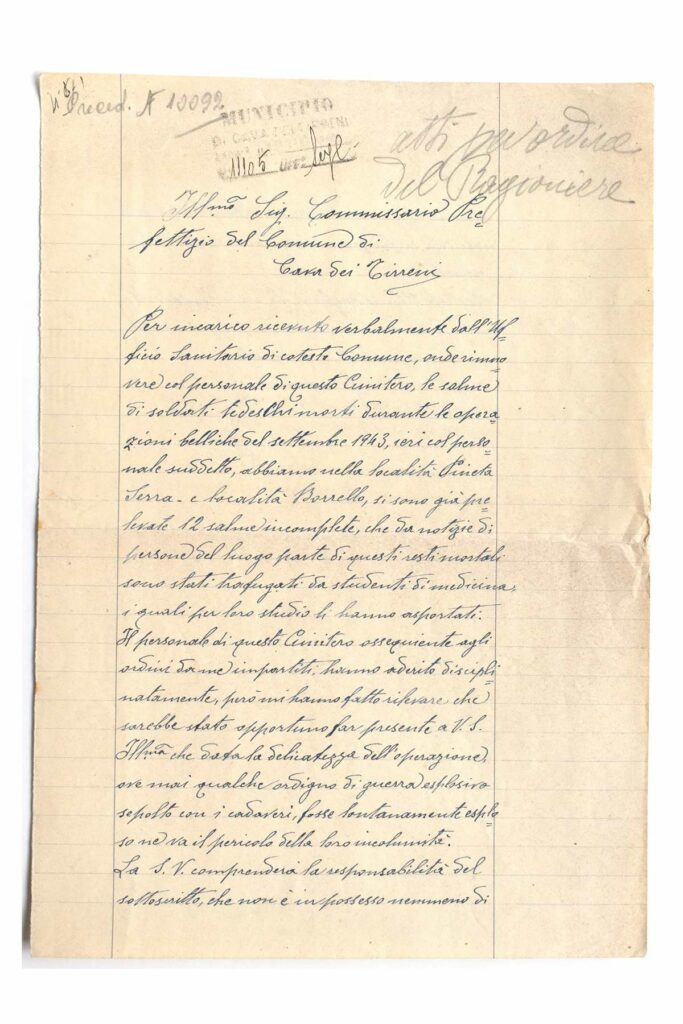 Preced. N 10092
MUNICIPIO
DI CAVA DEI TIRRENI
11105
atti per ordine
del Ragioniere
Ill.mo Sig. Commissario Pre=
fettizio del Comune di
Cava dei Tirreni
Per incarico ricevuto verbalmente dall'Uf=
ficio Sanitario di cotesto Comune, onde rimuo=
vere col personale di questo Cimitero, le salme
di soldati tedeschi morti durante le opera=
zioni belliche del settembre 1943, ieri col perso=
nale suddetto, abbiamo nella località Pineta
Serra - e località Borrello, si sono già pre=
levate 12 salme incomplete, che da notizie di
persone del luogo parte di questi resti mortali
sono stati trafugati da studenti di medicina,
i quali per loro studio li hanno asportati.
Il personale di questo Cimitero ossequiente agli
ordini da me impartiti, hanno aderito discipli=
natamente, però mi hanno fatto rilevare che
sarebbe stato opportuno far presente a V. S.
Ill.ma che data la delicatezza dell'operazione,
ove mai qualche ordigno di guerra esplosivo
sepolto con i cadaveri, fosse lontanamente esplo=
so ne va il pericolo della loro incolumità.
La S. V. comprenderà la responsabilità del
sottoscritto, che non è in possesso nemmeno di